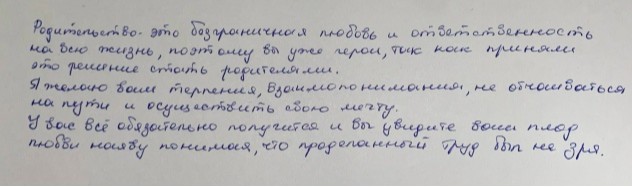 Родительство- это безграничная любовь и ответственность
на всю жизнь, поэтому вы уже герои, так как приняли
это решение стать родителями.
Я желаю вам терпения, взаимопонимания, не отчаиваться
на пути и осуществить свою мечту.
У вас всё обязательно получится и вы увидите ваш плод
любви наяву понимая, что проделанный труд был не зря.